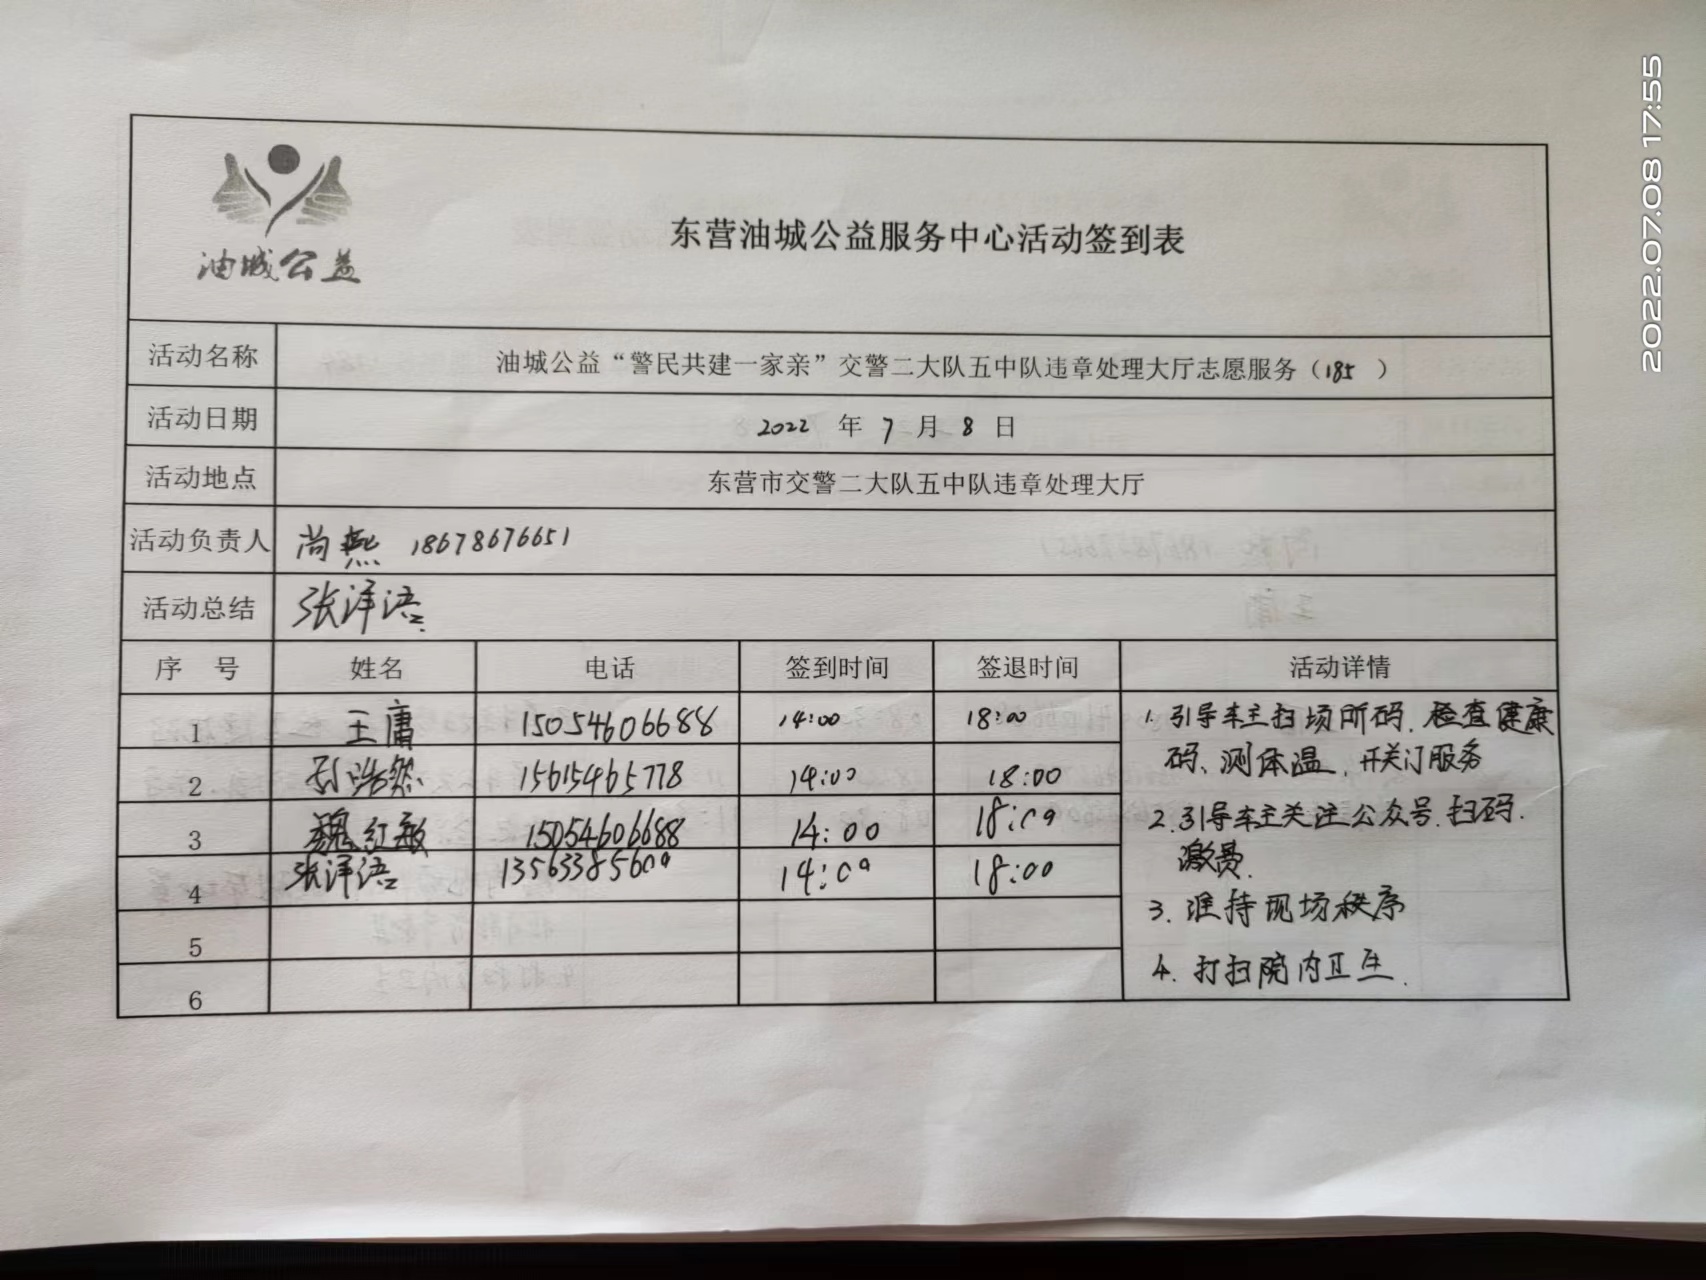 油城公益
东营油城公益服务中心活动签到表
活动名称 油城公益“警民共建一家亲”交警二大队五中队违章处理大厅志愿服务（185）
活动日期 2022 年 7 月 8 日
活动地点 东营市交警二大队五中队违章处理大厅
活动负责人 尚燕 18678676651
活动总结 张洋浯
序号 姓名 电话 签到时间 签退时间 活动详情
1 王庸 15054606688 14:00 18:00
2 孙浩然 15615465778 14:00 18:00
3 魏红敏 15054606688 14:00 18:00
4 张洋浯 13563385600 14:00 18:00
5
6
1. 引导车主扫场所码、检查健康
码、测体温，开关门服务
2. 引导车主关注公众号.扫码.
缴费.
3. 维持现场秩序
4. 打扫院内卫生.
2022.07.08 17:55